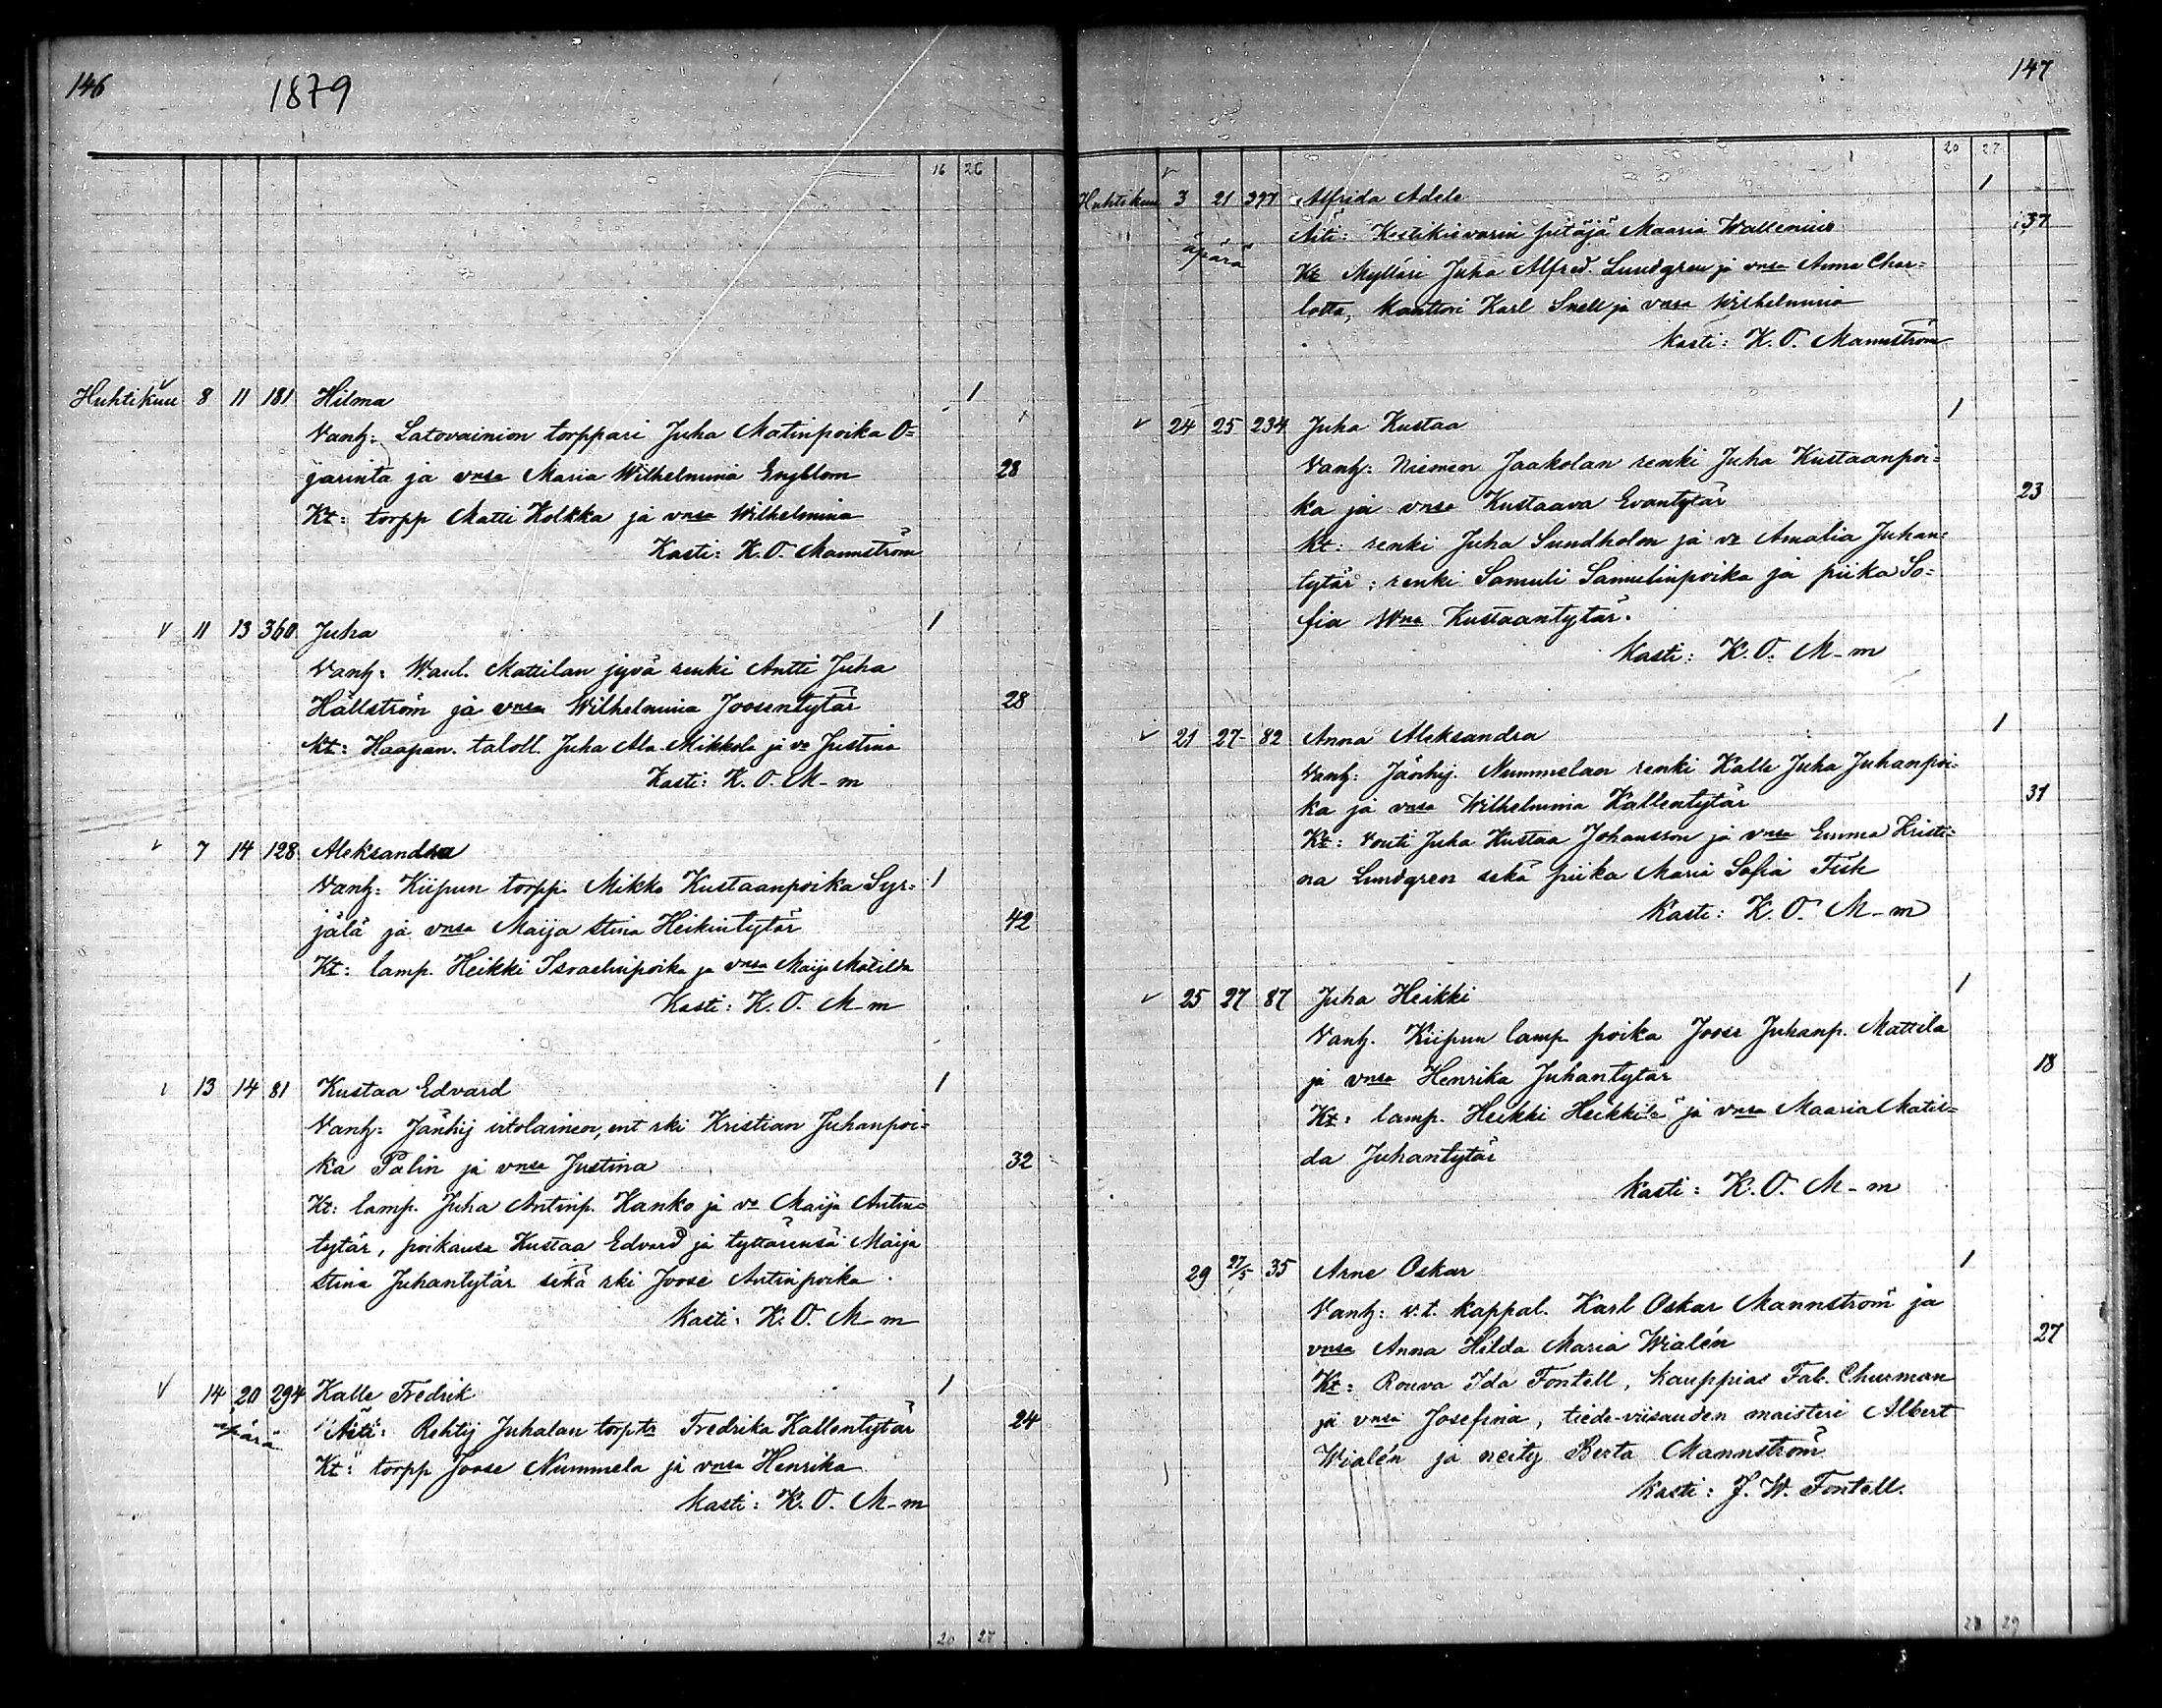 146
1879
16 26
Huhtikuu 8 11 181 Hilma 1
Vanh: Latovainion torppari Juha Matinpoika O=
jarinta ja vnsa Maria Wilhelmina Engblom 28
Kt: torpp Matti Kolkka ja vnsa Wilhelmina
Kasti: K. O. Mannström
11 13 360 Juha 1
Vanh: Waul. Mattilan jyvä renki Antti Juha
Hällström ja vnsa Wilhelmina Joosentytär 28
Kt: Haapan. taloll. Juha Ala-Mikkola ja vo Justina
Kasti: K. O. M-m
7 14 128 Aleksandra
Vanh: Kiipun torpp. Mikko Kustaanpoika Syr= 1
jälä ja vnsa Maija Stina Heikintytär 42
Kt: lamp. Heikki Israelinpoika ja vnsa Maija Matilda
Kasti: K. O. M-m
13 14 81 Kustaa Edvard 1
Vanh: Jänhij itolainen, ent rki Kristian Juhanpoi=
ka Palin ja vnsa Justina 32
Kt: lamp. Juha Antinp. Kanko ja vo Maija Antin=
tytär, poikansa Kustaa Edvard ja tyttärensä Maija
Stina Juhantytär sekä rki Joose Antinpoika
Kasti: K. O. M-m
14 20 294 Kalle Fredrik 1
äpärä Äiti: Rehtij Juhalan torp tr Fredrika Kallentytär 24
Kt: torpp Joose Nummela ja vnsa Henrika
Kasti: K. O. M-m
20 27
147
20 27
Huhtikuu 3 21 397 Alfrida Adele 1
äpärä Äiti: Kestikievarin pitäjä Maaria Wallenius 37
Kt Mylläri Juha Alfred. Lundgren ja vnsa Anna Char=
lotta, Kanttori Karl Snell ja vnsa Wilhelmina
Kasti: K. O. Mannström
24 25 234 Juha Kustaa 1
Vanh: Niemen Jaakolan renki Juha Kustaanpoi=
ka ja vnsa Kustaava Evantytär 23
Kt: renki Juha Sundholm ja vo Amalia Juhan=
tytär; renki Samuli Samulinpoika ja piika So=
fia Kustaantytär.
Kasti: K. O. M-m
21 27 82 Anna Aleksandra 1
Vanh: Jänhij. Nummelan renki Kalle Juha Juhanpoi=
ka ja vnsa Wilhelmina Kallentytär 31
Kt: Vouti Juha Kustaa Johansson ja vnsa Emma Kristi=
na Lundgren sekä piika Maria Sofia Fisk
Kasti: K. O. M-m
25 27 87 Juha Heikki 1
Vanh. Kiipun lamp poika Joose Juhanp. Mattila
ja vnsa Henrika Juhantytär 18
Kt: lamp. Heikki Heikkilä ja vnsa Maaria Matil=
da Juhantytär
Kasti: K. O. M-m
29 27/5 35 Arne Oskar 1
Vanh: v.t. kappal. Karl Oskar Mannström ja
vnsa Anna Hilda Maria Wialén 27
Kt: Rouva Ida Fontell, Kauppias Fab. Churman
ja vnsa Josefina, tiede-viisauden maisteri Albert
Wialén ja neity Berta Mannström
Kasti: J. W. Fontell.
29